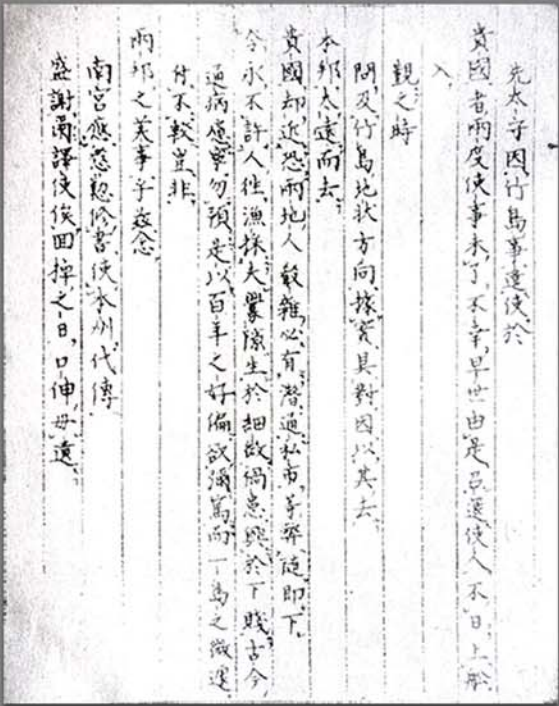 先太守因竹島事遣使於
貴國者兩度使事未了不幸早世由是召還使人不日上船
入
覲之時
問及竹島地状方向據実具對因以其去
本邦太遠而去
貴國却近恐兩地人殽雜必有潜通私市等弊随即下
令永不許人往漁採夫釁隙生於細故禍患興於下賤古今
通病慮寧勿預是以百年之好偏欲彌篤而一島之微遽
付不較豈非
兩邦之美事乎玆念
南宮應慇懃修書使本州代傳
盛謝爾譯使俟回掉之日口伸毋遺